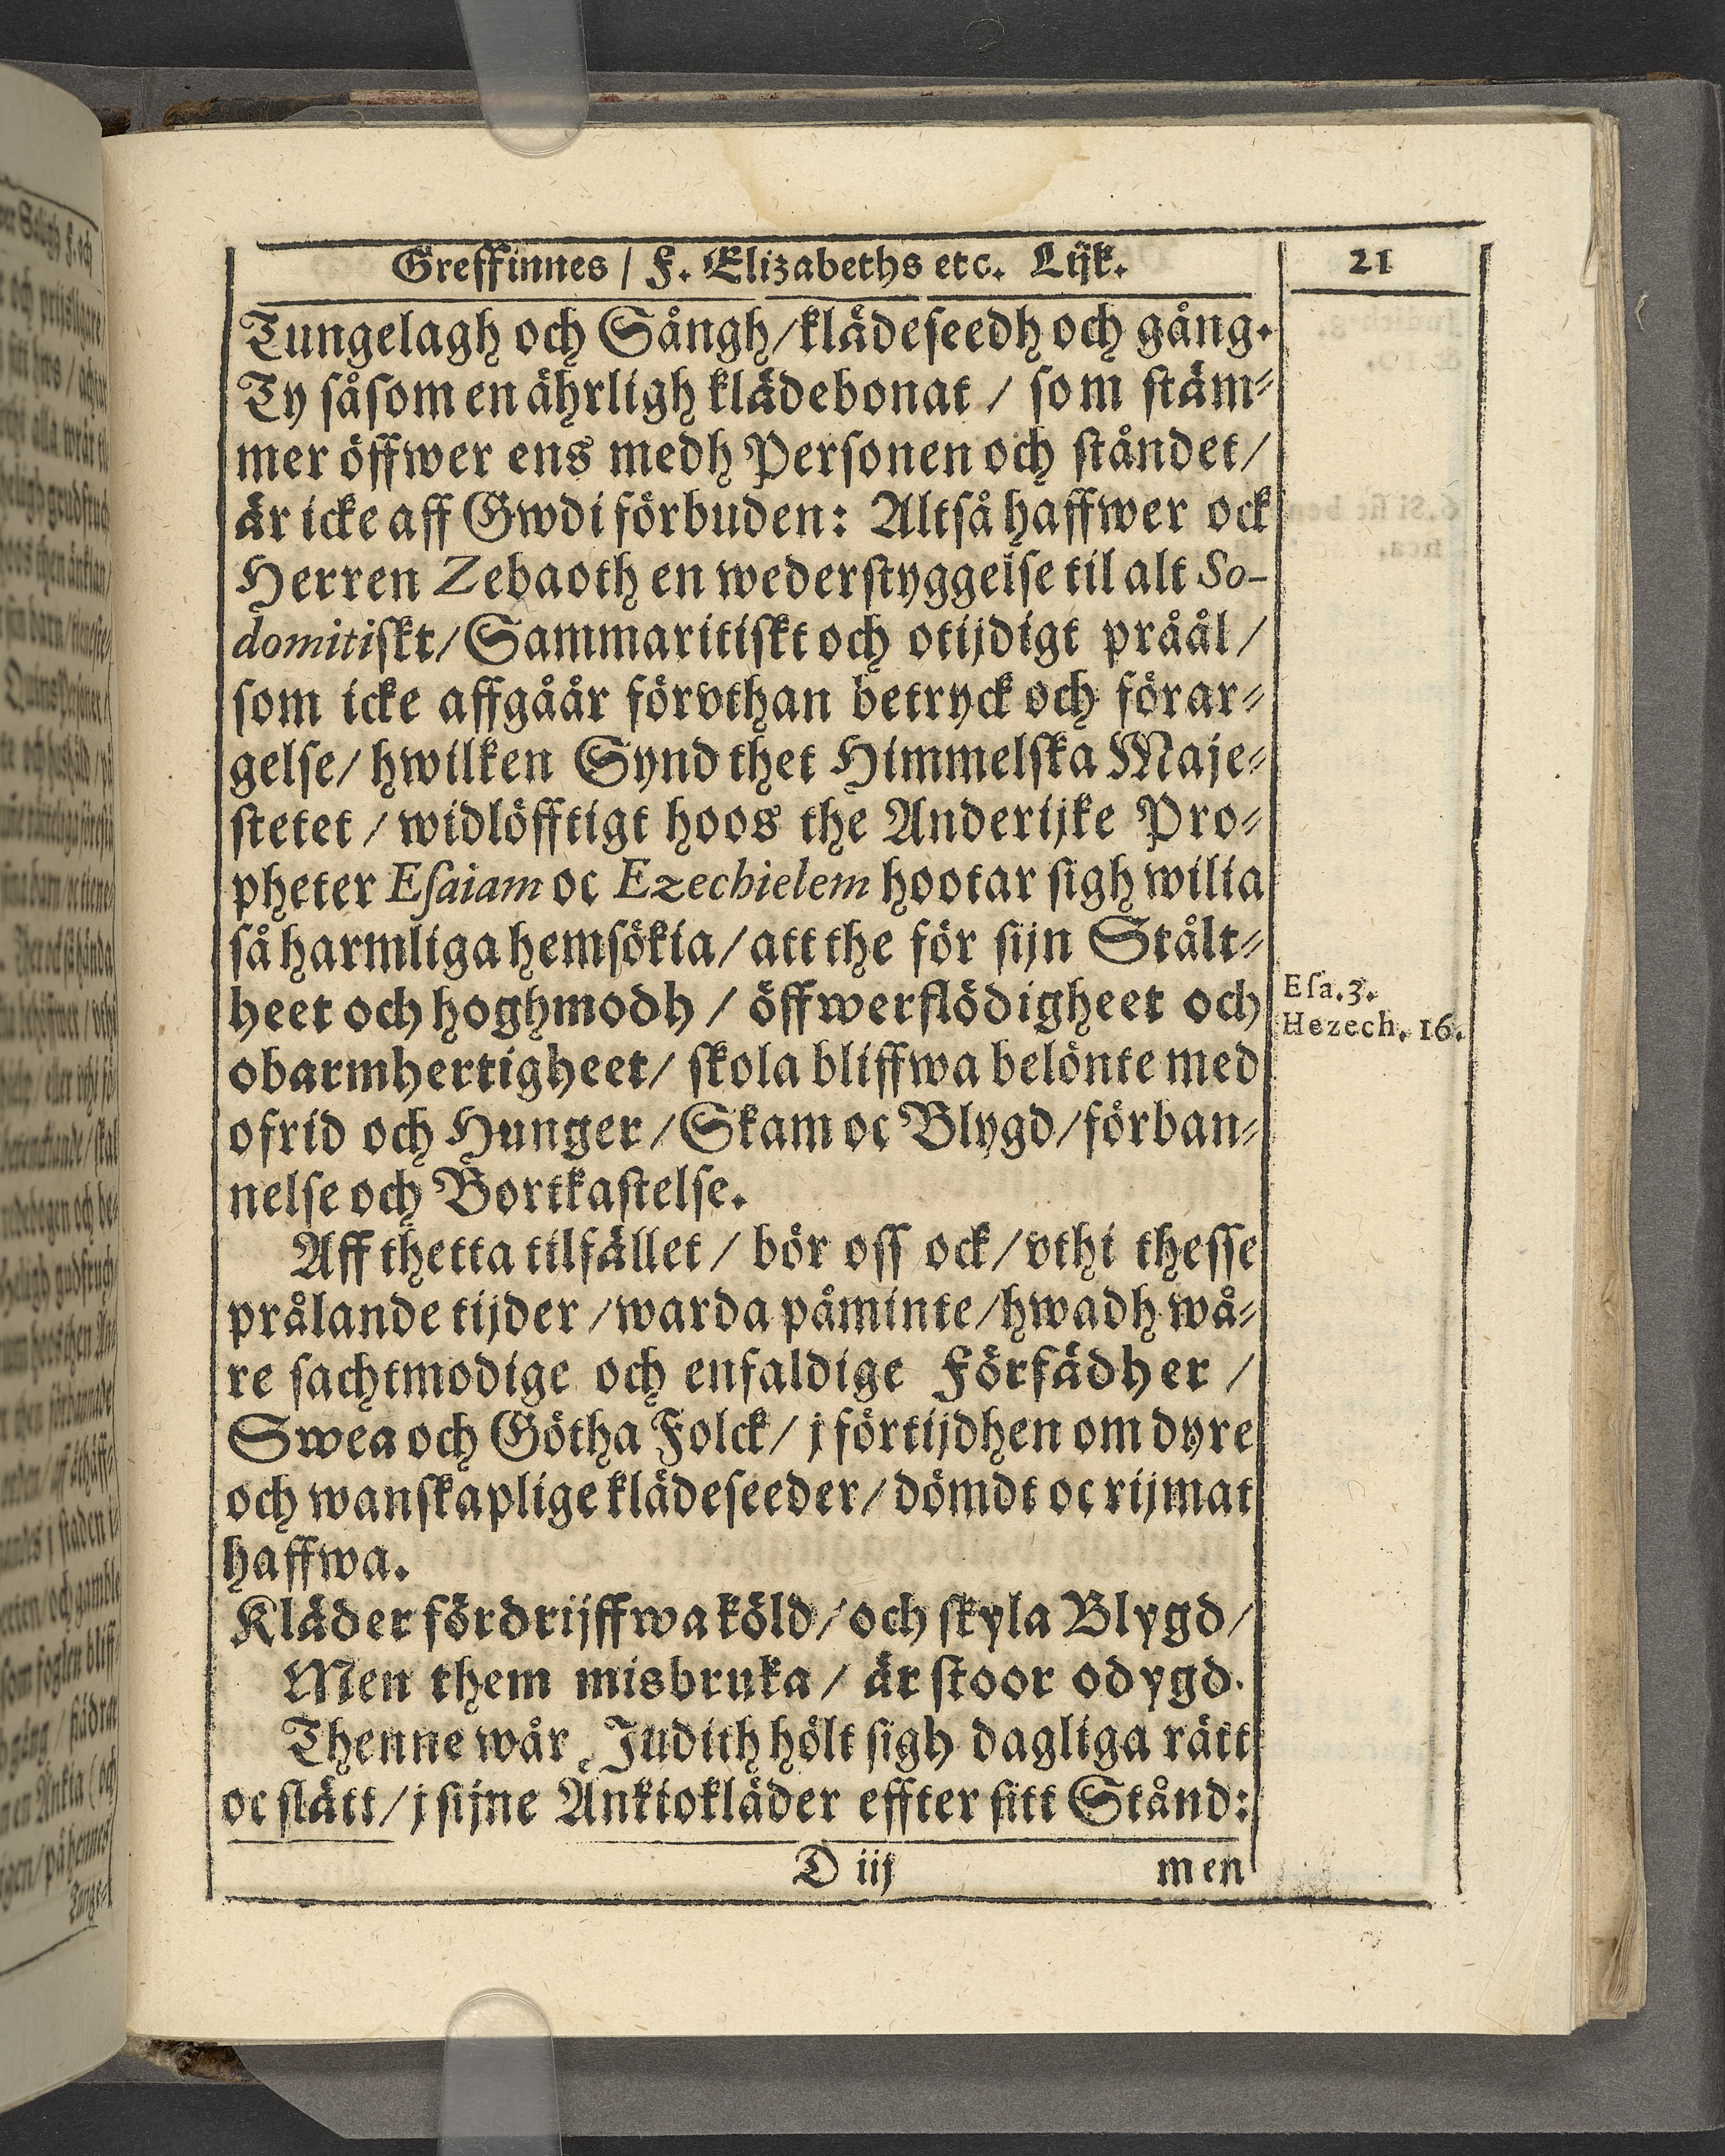 Greffinnes / F. Elizabeths etc. Lijk.
21
Tungelagh och Sångh/klädeseedh och gång.
Ty såsom en ährligh klädebonat / som stäm⸗
mer öffwer ens medh Personen och ståndet/
är icke aff Gwdi förbuden: Altså haffwer ock
Herren Zebaoth en wederstyggelse til alt So-
domitiskt/Sammaritiskt och otijdigt pråål/
som icke affgåår förvthan betryck och förar⸗
gelse/ hwilken Synd thet Himmelska Maje⸗
stetet / widlöfftigt hoos the Anderijke Pro⸗
pheter Esaiam oc Ezechielem hootar sigh wilia
så harmliga hemsökia/att the för sijn Stålt⸗
heet och hoghmodh / öffwerflödigheet och
Esa.3.
Hezech. 16.
obarmhertigheet/ skola bliffwa belönte med
ofrid och Hunger/Skam oc Blygd/förban⸗
nelse och Bortkastelse.
Aff thetta tilfället / bör oss ock/vthi thesse
prålande tijder /warda påminte/hwadh wå⸗
re sachtmodige och enfaldige Förfädher /
Swea och Götha Folck/ j förtijdhen om dyre
och wanskaplige klädeseeder/dömdt oc rijmat
haffwa.
Kläder fördrijffwa köld/och skyla Blygd/
Men them misbruka / är stoor odygd.
Thenne wår Judith hölt sigh dagliga rätt
oc slätt/j sijne Änkiokläder effter sitt Stånd:
D iij
men